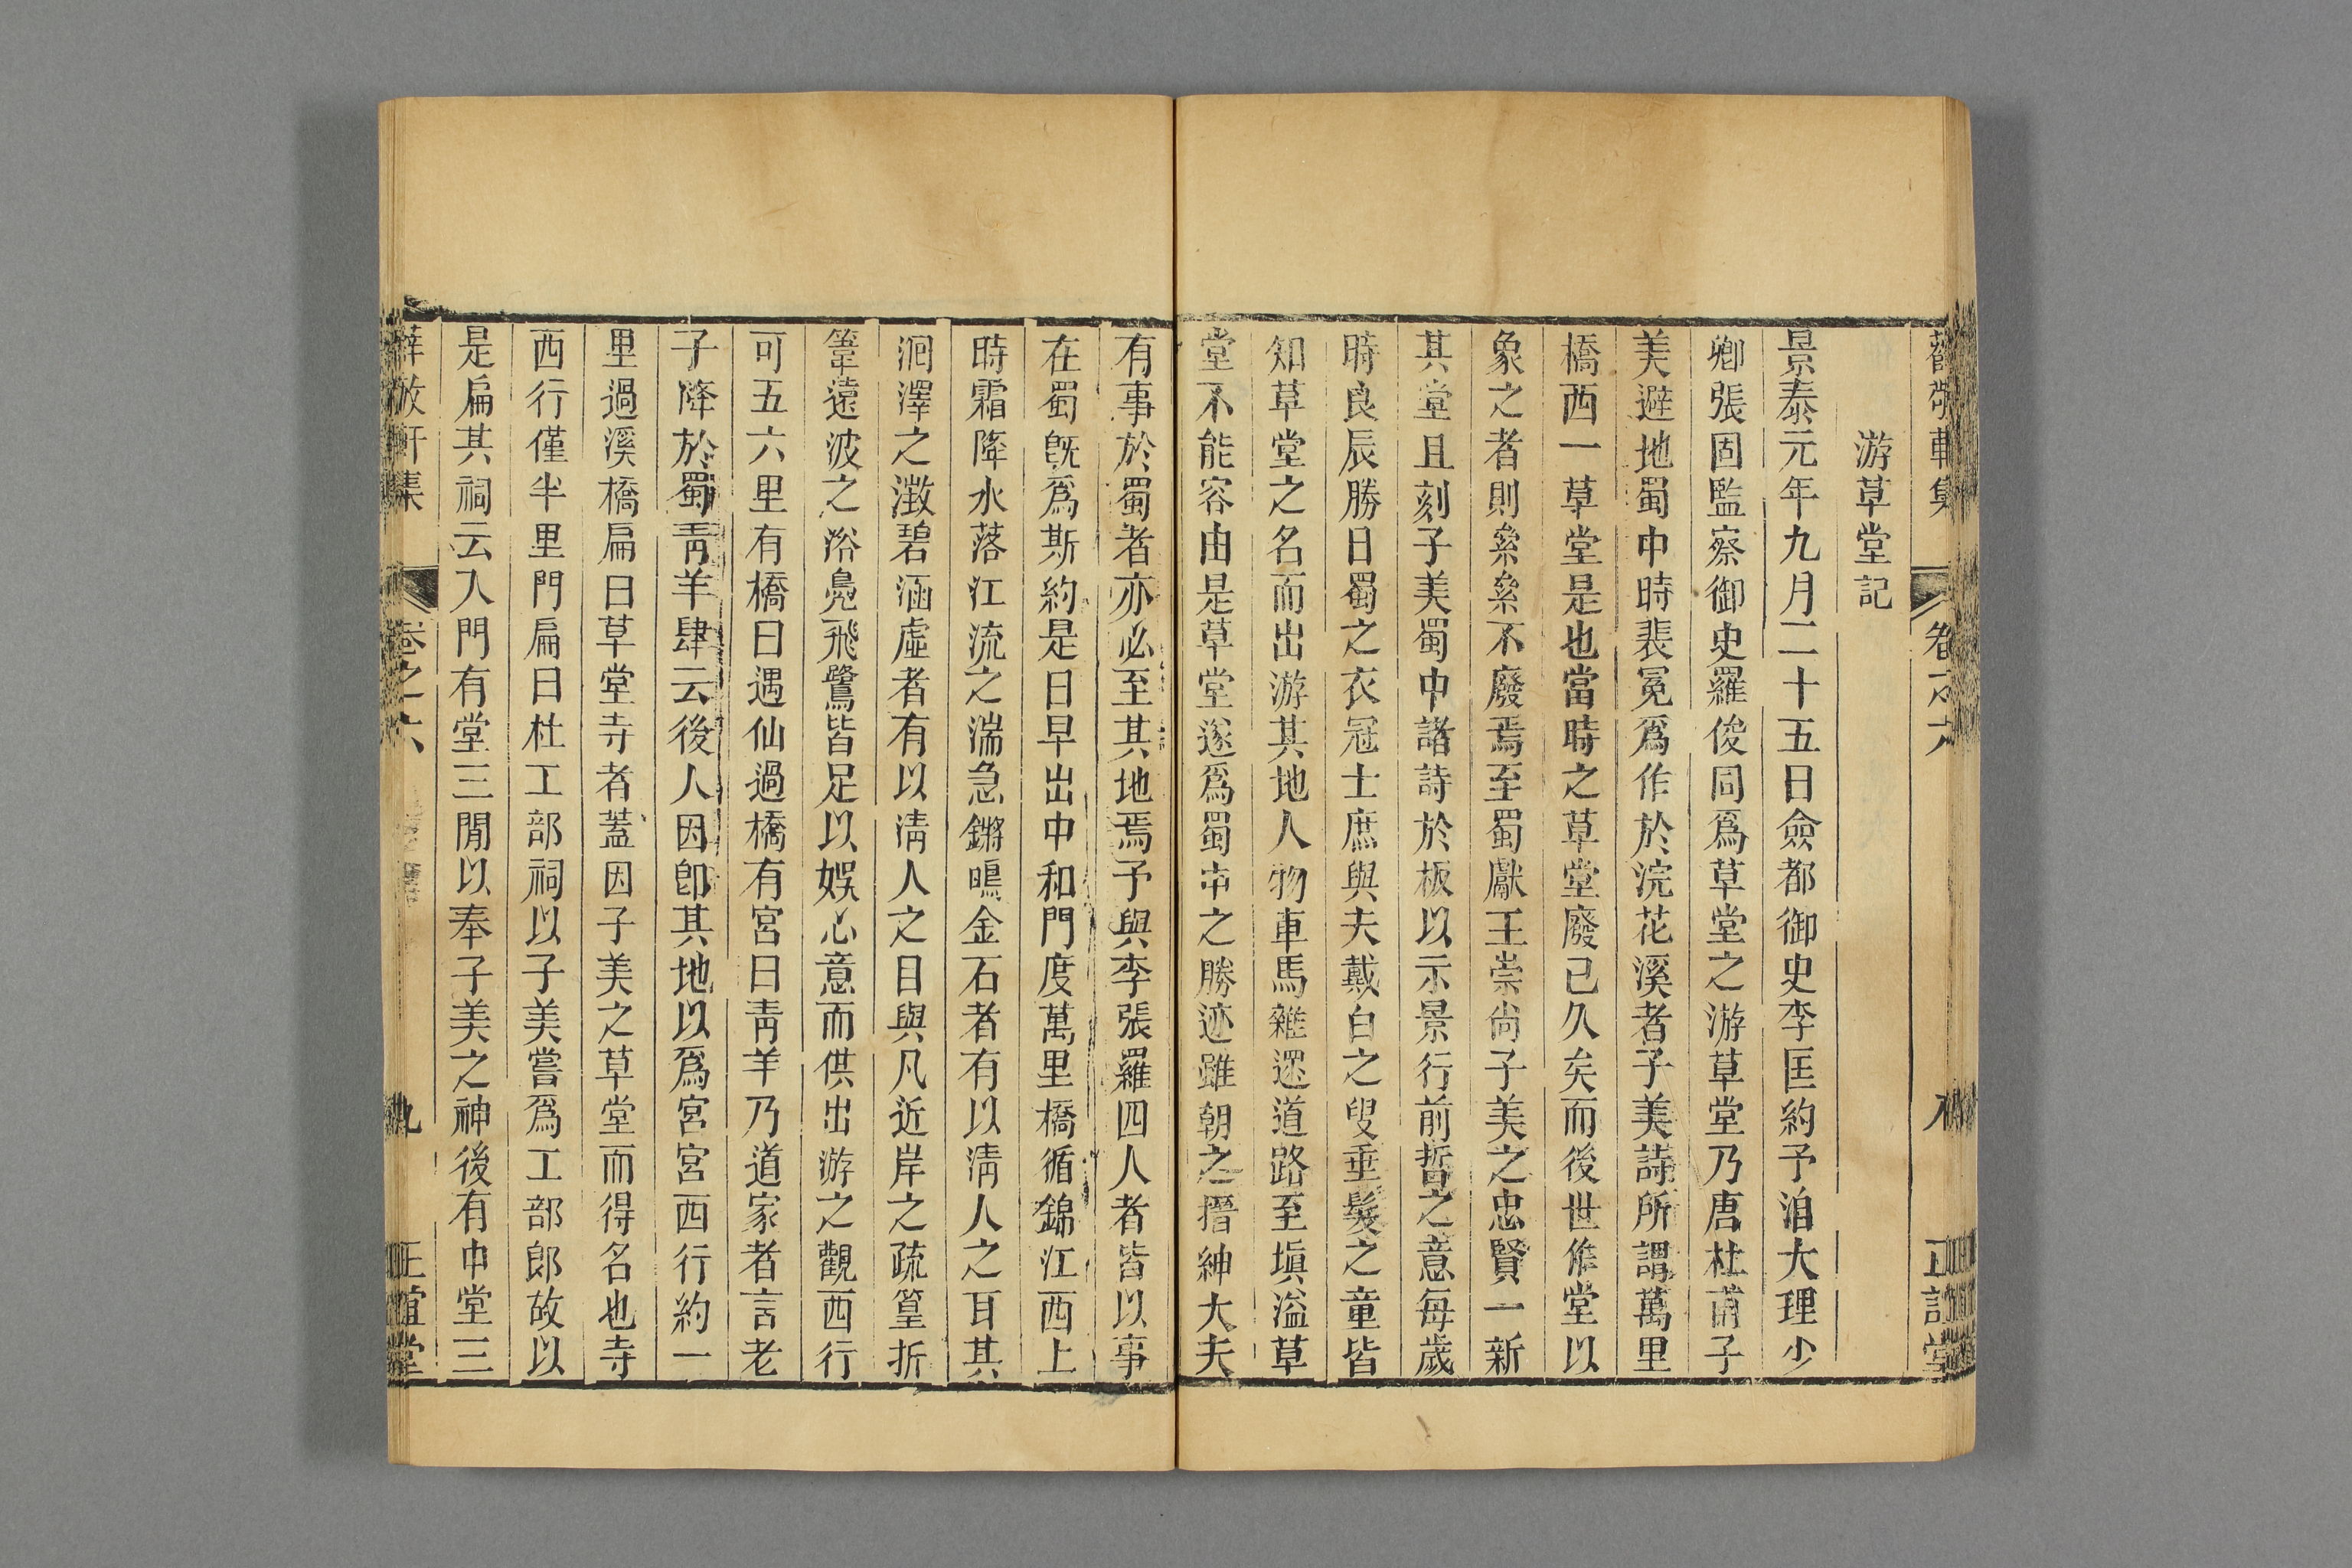 游草堂記
景泰元年九月二十五日僉都御史李匡約予洎大理少
卿張固監察御史羅俊同爲草堂之游草堂乃唐杜甫子
美避地蜀中時裴冕爲作於浣花溪者子美詩所謂萬里
橋西一草堂是也當時之草堂廢已久矣而後世作堂以
象之者則纍纍不廢焉至蜀獻王崇尙子美之忠賢一新
其堂且刻子美蜀中諸詩於板以示景行前哲之意每歲
時良辰勝日蜀之衣冠士庶與夫戴白之叟垂髮之童皆
知草堂之名而出游其地人物車馬雜遝道路至塡溢草
堂不能容由是草堂遂爲蜀中之勝迹雖朝之搢紳大夫
有事於蜀者亦必至其地焉予與李張羅四人者皆以事
在蜀旣爲斯約是日早出中和門度萬里橋循錦江西上
時霜降水落江流之湍急鏘鳴金石者有以淸人之耳其
洄澤之澂碧涵虛者有以淸人之目與凡近岸之疏篁折
葦遠波之浴鳧飛鷺皆足以娛心意而供出游之觀西行
可五六里有橋曰遇仙過橋有宮曰靑羊乃道家者言老
子降於蜀靑羊肆云後人因卽其地以爲宮宮西行約一
里過溪橋扁曰草堂寺者蓋因子美之草堂而得名也寺
西行僅半里門扁曰杜工部祠以子美嘗爲工部郎故以
是扁其祠云入門有堂三閒以奉子美之神後有中堂三
薛敬軒集
卷之六
九
正誼堂